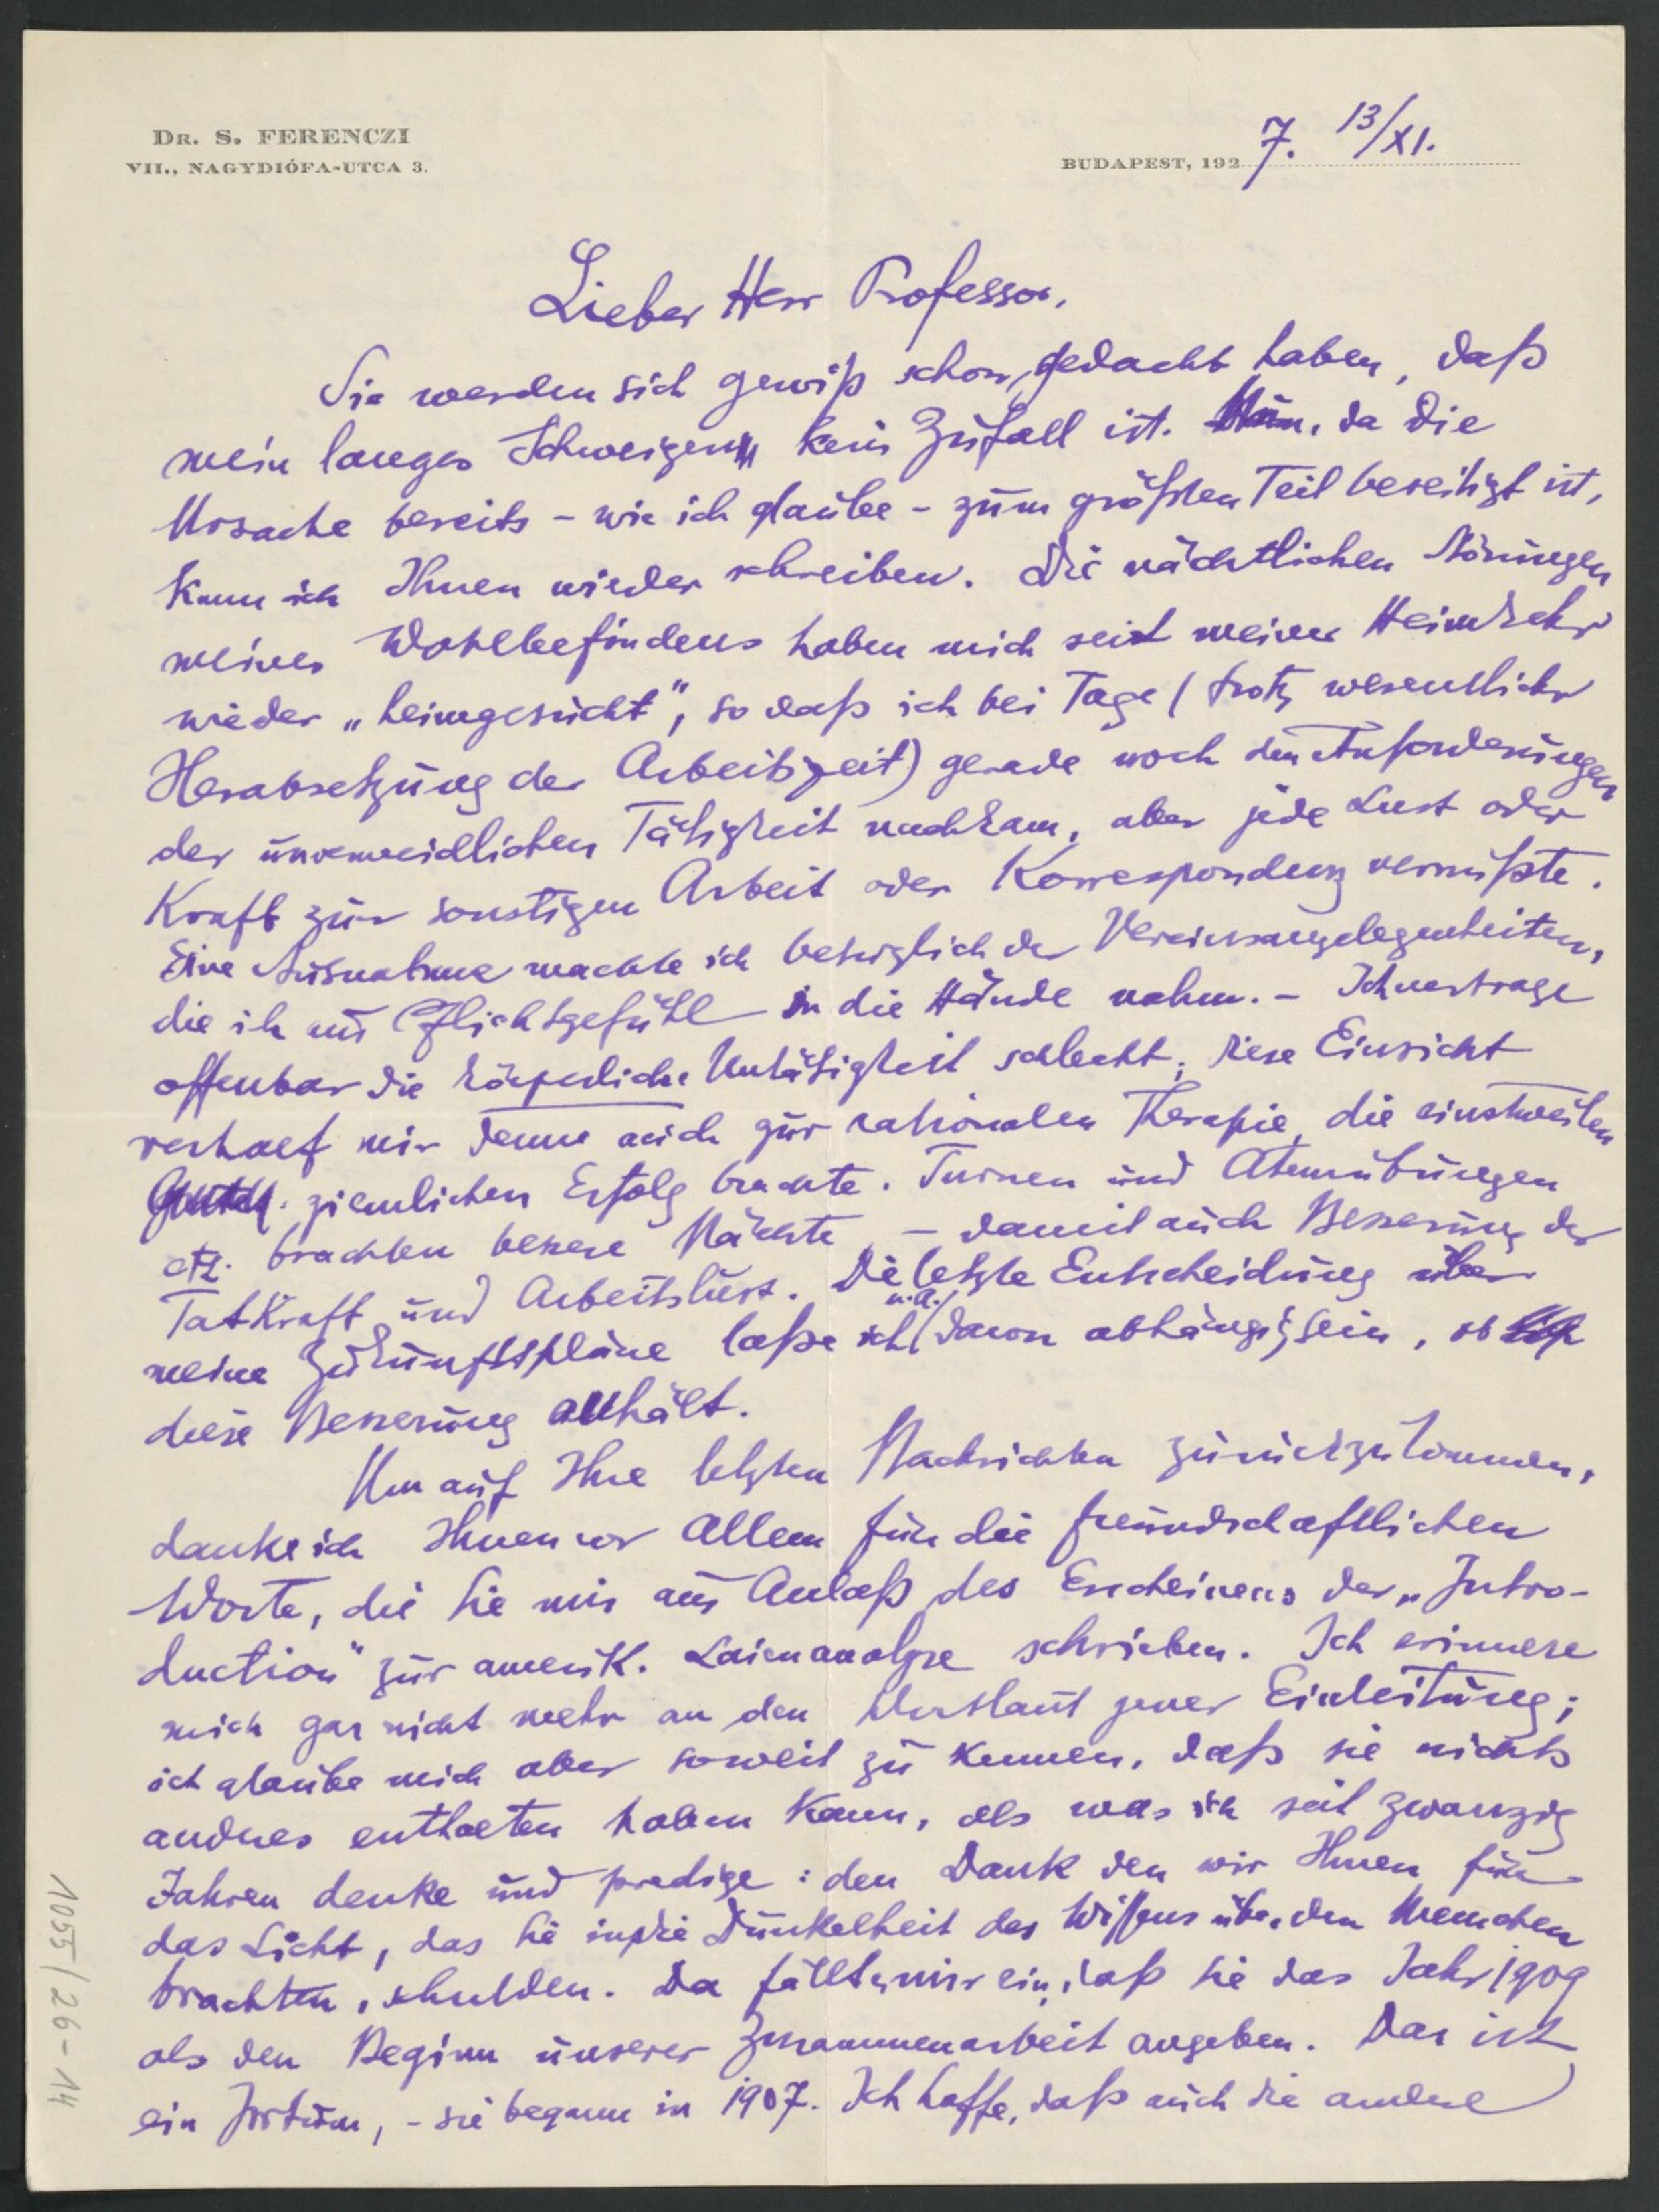 DR. S. FERENCZI
VII., NAGYDIÓFA-UTCA 3.
BUDAPEST, 1927. 13/XI.
Lieber Herr Professor,
Sie werden sich gewiß schon gedacht haben, daß
mein langes Schweigen kein Zufall ist. da die
Ursache bereits – wie ich glaube – zum größten Teil beseitigt ist,
kann ich Ihnen wieder schreiben. Die nächtlichen Störungen
meines Wohlbefindens haben mich seit meiner Heimkehr
wieder „heimgesucht", so daß ich bei Tage (trotz wesentlicher
Herabsetzung der Arbeitszeit) gerade noch den Anforderungen
der unvermeidlichen Tätigkeit nachkam, aber jede Lust oder
Kraft zur sonstigen Arbeit oder Korrespondenz vermißte.
Eine Ausnahme machte ich bezüglich der Vereinsangelegenheiten,
die ich aus Pflichtgefühl in die Hände nahm. – Ich vertrage
offenbar die körperliche Untätigkeit schlecht; diese Einsicht
verhalf mir denn auch zur rationalen Therapie, die einstweilen
ziemlichen Erfolg brachte. Turnen und Atemübungen
etz. brachten bessere Nächte, – damit auch Besserung der
Tatkraft und Arbeitslust. Die letzte Entscheidung über
meine Zukunftspläne laße ich u. a. davon abhängig sein, ob
diese Besserung anhält.
Um auf Ihre letzten Nachrichten zurückzukommen,
danke ich Ihnen vor Allem für die freundschaftlichen
Worte, die Sie mir aus Anlaß des Erscheinens der „Intro-
duction" zur amerik. Laienanalyse schrieben. Ich erinnere
mich gar nicht mehr an den Wortlaut jener Einleitung;
ich glaube mich aber soweit zu kennen, daß sie nichts
andres enthalten haben kann, als was ich seit zwanzig
Jahren denke und predige: den Dank den wir Ihnen für
das Licht, das Sie in die Dunkelheit des Wissens über den Menschen
brachten, schulden. Da fällt mir ein, daß Sie das Jahr 1909
als den Beginn unserer Zusammenarbeit angeben. Das ist
ein Irrtum, – sie begann in 1907. Ich hoffe, daß auch die andere
1055/26-14